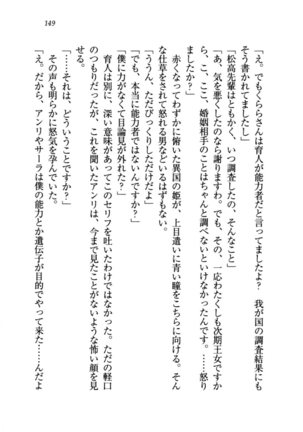 149
「え。でもくららさんは育人が能力者だと言ってましたよ？　我が国の調査結果にも
そう書かれてましたし」
「松高先輩はともかく、いつ調査したの、そんなこと」
「あ、気を悪したのなら謝りますわ。でも、その、一応わたくしも次期王女ですか
ら、こ、ここ、婚姻相手のことはちゃんと調べないといけなかったんです。……怒り
ましたか？」
　赤くなってわずかに俯いた異国の姫が、上目遣いに青い瞳をこちらに向ける。そん
な仕草をされて怒れる男などいるはずもない。
「ううん、ただびっくりしただけだよ」
「でも、本当に能力者ではないんですか？」
「僕に力がなくて目論見が外れた？」
　育人は別に、深い意味があってこのセリフを吐いたわけではなかった。ただの軽口
のつもりだったが、これを聞いたアンリは、今まで見たことがないような怖い顔を見
せる。
「……それは、どういうことですか？」
　その声も明らかに怒気を孕んでいた。
「え。だから、アンリやサーラは僕の能力とか遺伝子が目的でやって来た……んだよ